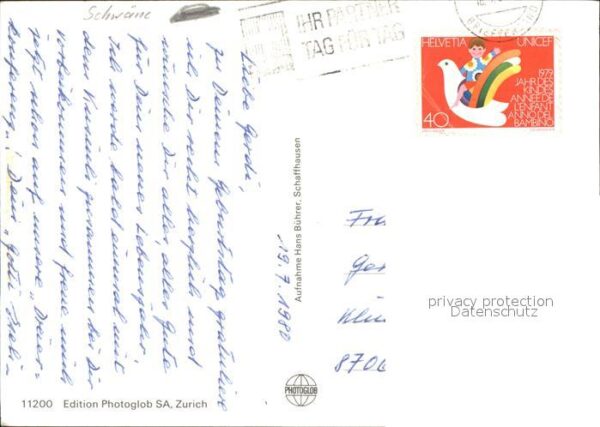 Schwäne
IHR PARTNER
TAG FÜR TAG
HELVETIA UNICEF
1979
JAHR DES
KINDES
ANNÉE DE
L'ENFANT
ANNO DEL
BAMBINO
40
Liebe Gerda,
zu Deinem Geburtstag gratuliere
ich Dir recht herzlich und
wünsche Dir alles, alles Gute
für Dein neues Lebensjahr.
Ich werde bald einmal mit
dem zusammen bei Dir
vorbeikommen und freue mich
jetzt schon auf unsere
Dein
19.7.1980
Aufnahme Hans Bührer, Schaffhausen
Fra
Ger
870
privacy protection
Datenschutz
PHOTOGLOB
11200 Edition Photoglob SA, Zurich